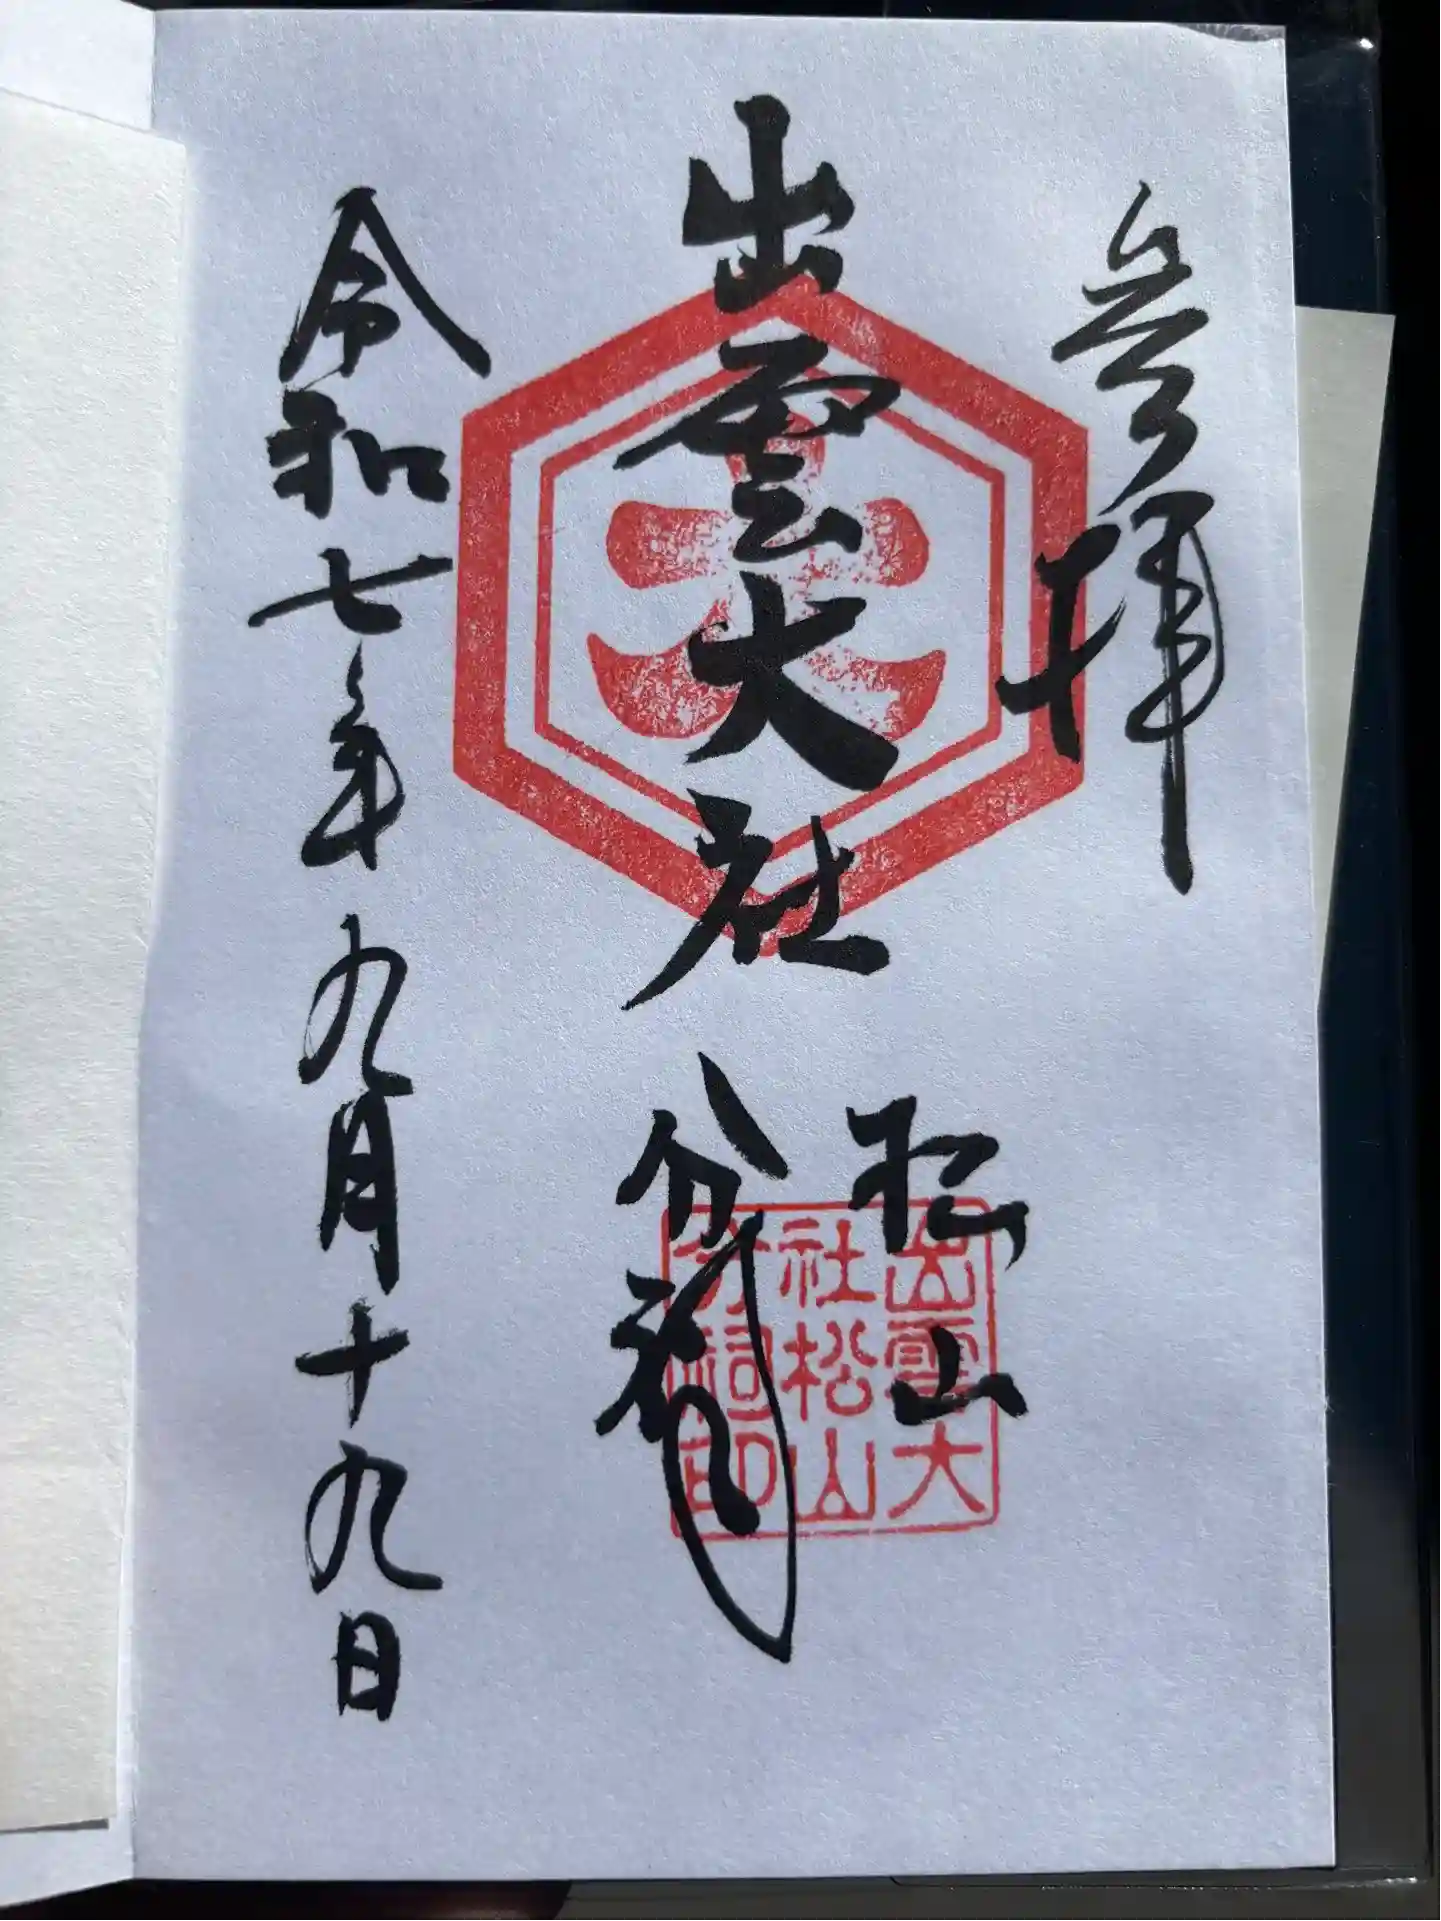 參拝
出雲大社
松山
分祠
令和七年九月十九日
大
出雲大
社松山
分祠印